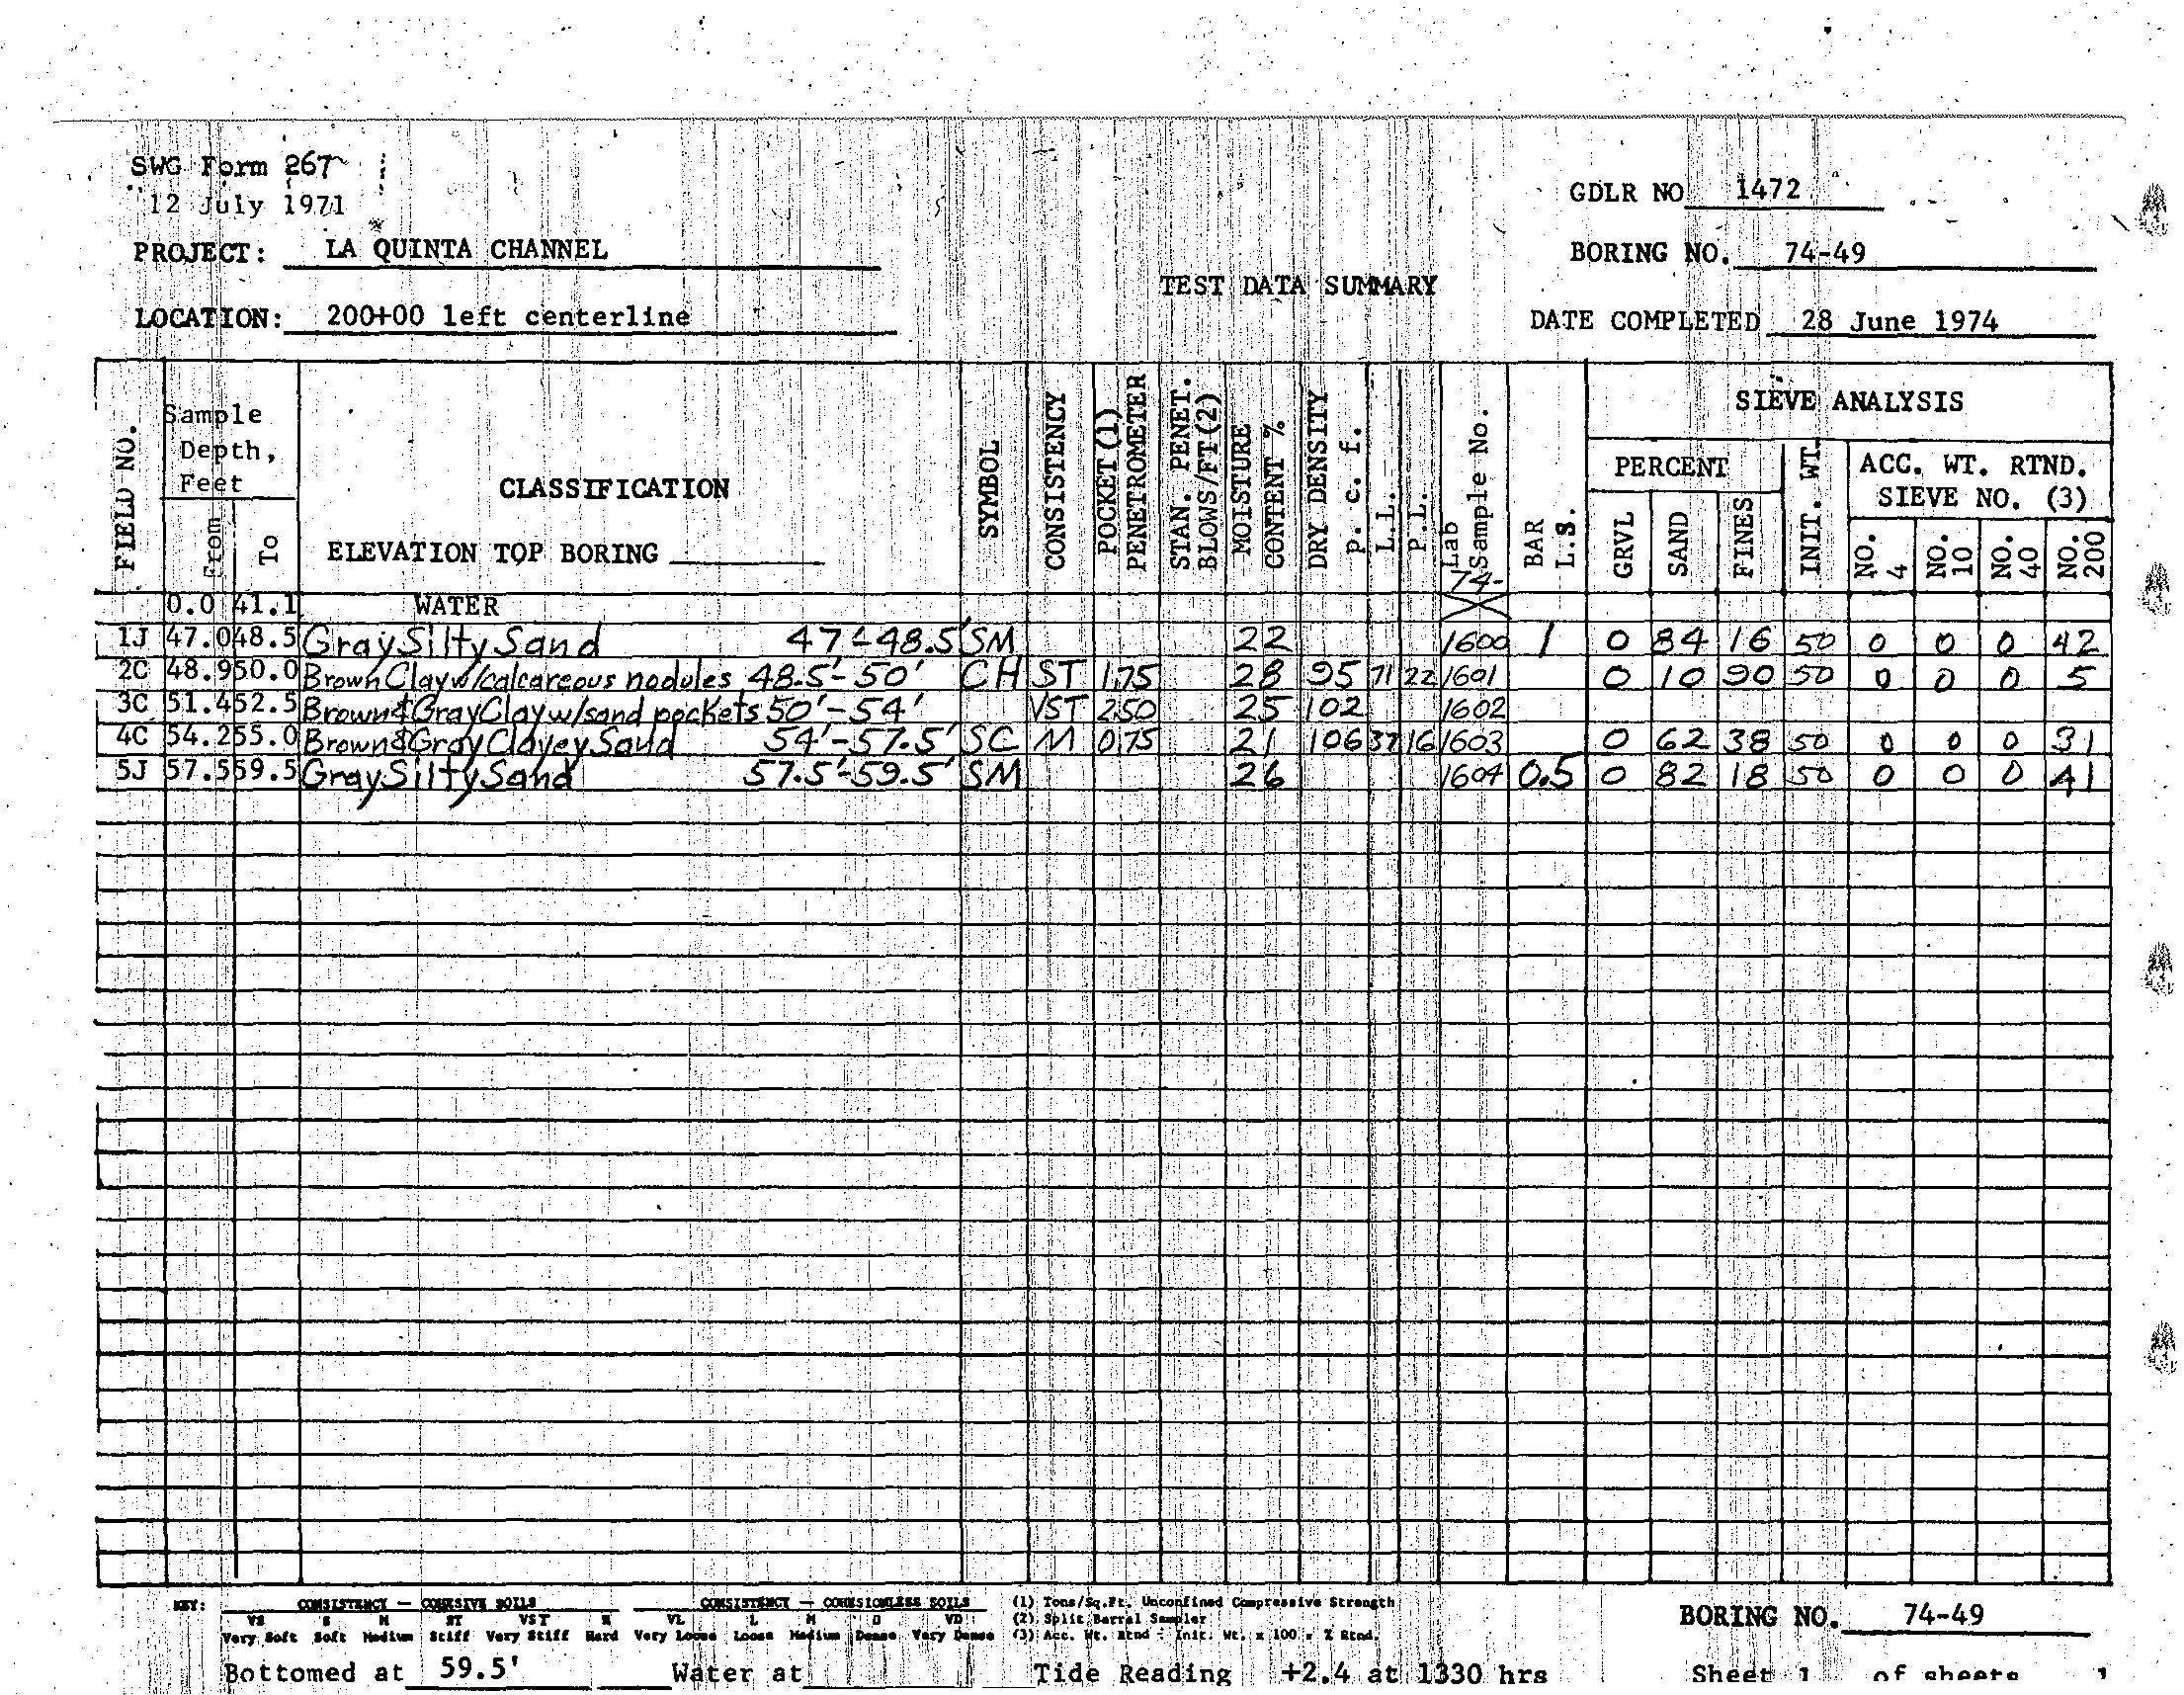 SWG Form 267
12 July 1971
GDLR NO 1472
PROJECT: LA QUINTA CHANNEL
BORING NO. 74-49
TEST DATA SUMMARY
LOCATION: 200+00 left centerline
DATE COMPLETED 28 June 1974
FIELD NO.
Sample Depth, Feet
From
To
CLASSIFICATION
ELEVATION TOP BORING
SYMBOL
CONSISTENCY
POCKET (1) PENETROMETER
STAN. PENET. BLOWS/FT (2)
MOISTURE CONTENT %
DRY DENSITY p. c. f.
L.L.
P.L.
Lab Sample No.
74-
BAR L.S.
SIEVE ANALYSIS
PERCENT
GRVL
SAND
FINES
INIT. WT.
ACC. WT. RTND. SIEVE NO. (3)
NO. 4
NO. 10
NO. 40
NO. 200
0.0 41.1 WATER
1J 47.0 48.5 Gray Silty Sand 47'-48.5' SM 22 1600 1 0 84 16 50 0 0 0 42
2C 48.9 50.0 Brown Clay w/calcareous nodules 48.5'-50' CH ST 1.75 28 95 71 22 1601 0 10 90 50 0 0 0 5
3C 51.4 52.5 Brown & Gray Clay w/sand pockets 50'-54' VST 2.50 25 102 1602
4C 54.2 55.0 Brown & Gray Clayey Sand 54'-57.5' SC M 0.75 21 106 37 16 1603 0 62 38 50 0 0 0 31
5J 57.5 59.5 Gray Silty Sand 57.5'-59.5' SM 26 1604 0.5 0 82 18 50 0 0 0 41
KEY: CONSISTENCY — COHESIVE SOILS CONSISTENCY — COHESIONLESS SOILS (1) Tons/Sq.Ft. Unconfined Compressive Strength
VS S M ST VST H VL L M D VD (2) Split Barrel Sampler
Very Soft Soft Medium Stiff Very Stiff Hard Very Loose Loose Medium Dense Very Dense (3) Acc. Wt. Rtnd ÷ Init. Wt. x 100 = % Rtnd.
BORING NO. 74-49
Bottomed at 59.5' Water at Tide Reading +2.4 at 1330 hrs Sheet 1 of sheets 1